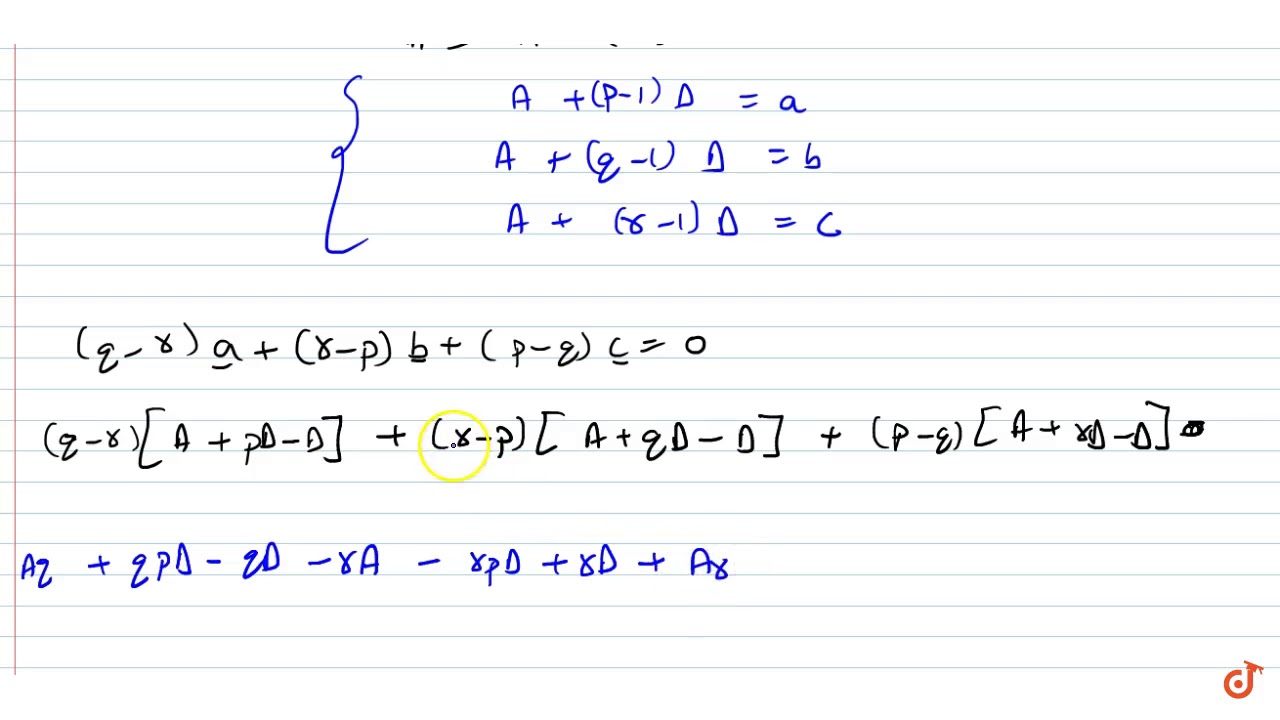 A + (p-1) D = a
A + (q-1) D = b
A + (r-1) D = c
(q-r) a + (r-p) b + (p-q) c = 0
(q-r) [A + pD - D] + (r-p) [A + qD - D] + (p-q) [A + rD - D]
Aq + qpD - qD - rA - rpD + rD + Ar